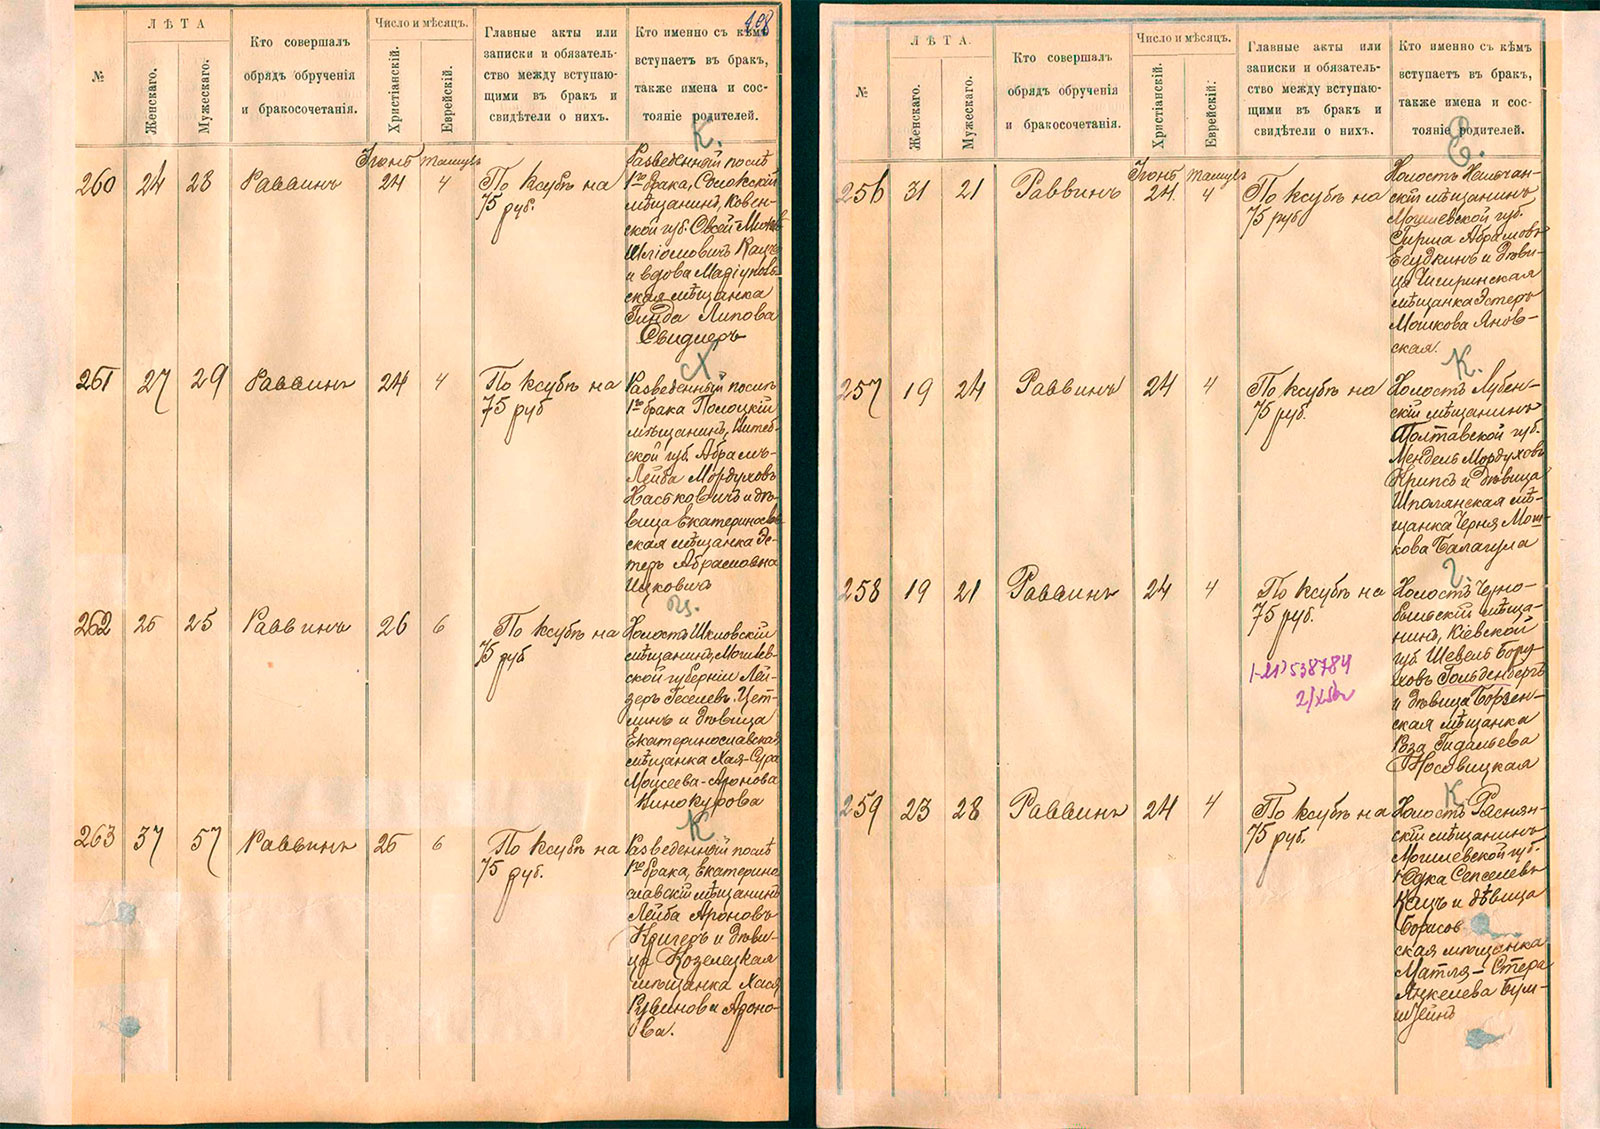 408
№
ЛѢТА
Женскаго.
Мужескаго.
Кто совершалъ
обрядъ обрученія
и бракосочетанія.
Число и мѣсяцъ.
Христіанскій.
Еврейскій.
Главные акты или
записки и обязатель-
ство между вступаю-
щими въ бракъ и
свидѣтели о нихъ.
Кто именно съ кѣмъ
вступаетъ въ бракъ,
также имена и сос-
тояніе родителей.
К.
260 24 28 Раввинъ
Іюнь Тамузъ
24 4
По ксубѣ на
75 руб.
Разведенный послѣ
1го брака, Солокскій
мѣщанинъ, Ковен-
ской губ. Овсей
Шліомовичъ Кацъ
и вдова
ская мѣщанка
Гинда Липова
Свидлеръ
Х.
261 27 29 Раввинъ 24 4
По ксубѣ на
75 руб
Разведенный послѣ
1го брака Полоцкій
мѣщанинъ, Витеб-
ской губ. Абрамъ-
Лейба Мордуховъ
Хасъковичъ и дѣ-
вица Екатеринослав-
ская мѣщанка Эс-
теръ Абрамовна
Ицковичъ
Ц.
262 25 25 Раввинъ 26 6
По ксубѣ на
75 руб
Холостъ Шкловскій
мѣщанинъ, Могилев-
ской губерніи Лей-
зеръ Геселевъ Цет-
линъ и дѣвица
Екатеринославская
мѣщанка Хая-Сура
Моисеева-Аронова
Винокурова
К
263 37 57 Раввинъ 26 6
По ксубѣ на
75 руб.
Разведенный послѣ
1го брака, Екатерино
славскій мѣщанинъ
Лейба Ароновъ
Кригеръ и дѣви-
ца Козелецкая
мѣщанка Хася
Рувинова Ароно-
ва.
№
ЛѢТА.
Женскаго.
Мужескаго.
Кто совершалъ
обрядъ обрученія
и бракосочетанія.
Число и мѣсяцъ.
Христіанскій.
Еврейскій.
Главные акты или
записки и обязатель-
ство между вступаю-
щими въ бракъ и
свидѣтели о нихъ.
Кто именно съ кѣмъ
вступаетъ въ бракъ,
также имена и сос-
тояніе родителей.
Е.
256 31 21 Раввинъ
Іюнь Тамузъ
24 4
По ксубѣ на
75 руб
Холостъ
скій мѣщанинъ
Могилевской губ.
Гирша Абрамовъ
Егудкинъ и дѣви-
ца Чигиринская
мѣщанка Эстеръ
Мошкова Янов-
ская.
К.
257 19 24 Раввинъ 24 4
По ксубѣ на
75 руб.
Холостъ Лубен-
скій мѣщанинъ
Полтавской губ.
Мендель Мордуховъ
Крипсъ и дѣвица
Шполянская мѣ-
щанка Черня Мош-
кова Балагула
Г.
258 19 21 Раввинъ 24 4
По ксубѣ на
75 руб.
538784
Холостъ Черно-
быльскій мѣща-
нинъ, Кіевской
губ. Шевель Бору-
ховъ Гольденбергъ
и дѣвица Борзен-
ская мѣщанка
Роза Гидальева
Носовицкая
К.
259 23 28 Раввинъ 24 4
По ксубѣ на
75 руб.
Холостъ Раснян-
скій мѣщанинъ
Могилевской губ.
Юдка
Кацъ и дѣвица
Борисов
ская мѣщанка
Матля-Стера
Янкелева Бум-
штейнъ